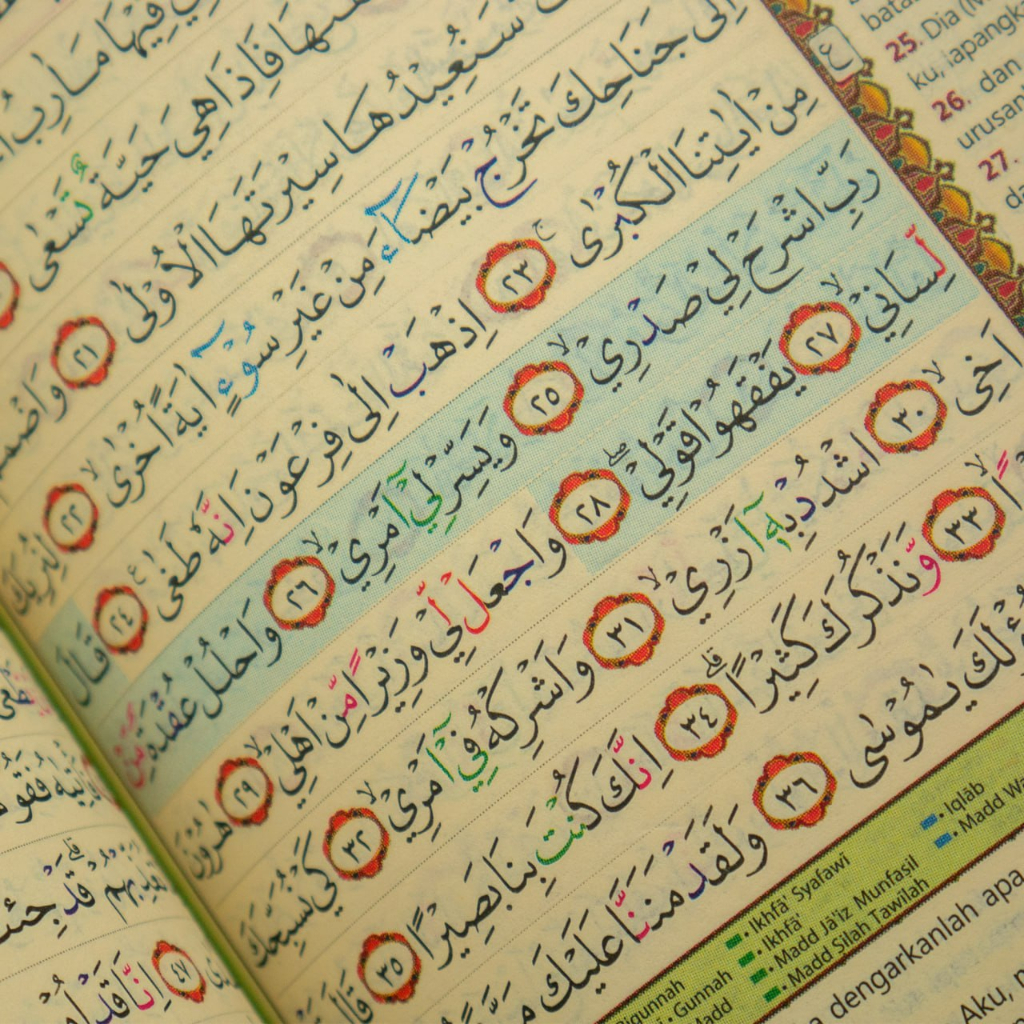 فِيْهَا مَاٰرِبُ
فَاِذَا هِيَ حَيَّةٌ تَسْعٰى
سَنُعِيْدُهَا سِيْرَتَهَا الْاُوْلٰى ٢١ وَاضْمُمْ
اِلٰى جَنَاحِكَ تَخْرُجْ بَيْضَاۤءَ مِنْ غَيْرِ سُوْۤءٍ اٰيَةً اُخْرٰىۙ ٢٢ لِنُرِيَكَ
مِنْ اٰيٰتِنَا الْكُبْرٰىۚ ٢٣ اِذْهَبْ اِلٰى فِرْعَوْنَ اِنَّهٗ طَغٰىࣖ ٢٤ قَالَ
رَبِّ اشْرَحْ لِيْ صَدْرِيْۙ ٢٥ وَيَسِّرْ لِيْٓ اَمْرِيْۙ ٢٦ وَاحْلُلْ عُقْدَةً مِّنْ
لِّسَانِيْۙ ٢٧ يَفْقَهُوْا قَوْلِيْۖ ٢٨ وَاجْعَلْ لِّيْ وَزِيْرًا مِّنْ اَهْلِيْۙ ٢٩ هٰرُوْنَ
اَخِىۙ ٣٠ اشْدُدْ بِهٖٓ اَزْرِيْۙ ٣١ وَاَشْرِكْهُ فِيْٓ اَمْرِيْۙ ٣٢ كَيْ نُسَبِّحَكَ
ۙ ٣٣ وَّنَذْكُرَكَ كَثِيْرًاۗ ٣٤ اِنَّكَ كُنْتَ بِنَا بَصِيْرًا ٣٥ قَالَ
سُؤْلَكَ يٰمُوْسٰى ٣٦ وَلَقَدْ مَنَنَّا عَلَيْكَ مَرَّةً
قَدْ جِئْنٰكَ
٤٧ اِنَّا قَدْ
25. Dia (M
ku, lapangka
26. dan
urusan
27.
Iqlāb
Madd Wa
Ikhfā' Syafawi
Ikhfā'
Madd Jā'iz Munfaṣil
Madd Silah Tawīlah
Bigunnah
Gunnah
Madd
dengarkanlah apa
Aku,